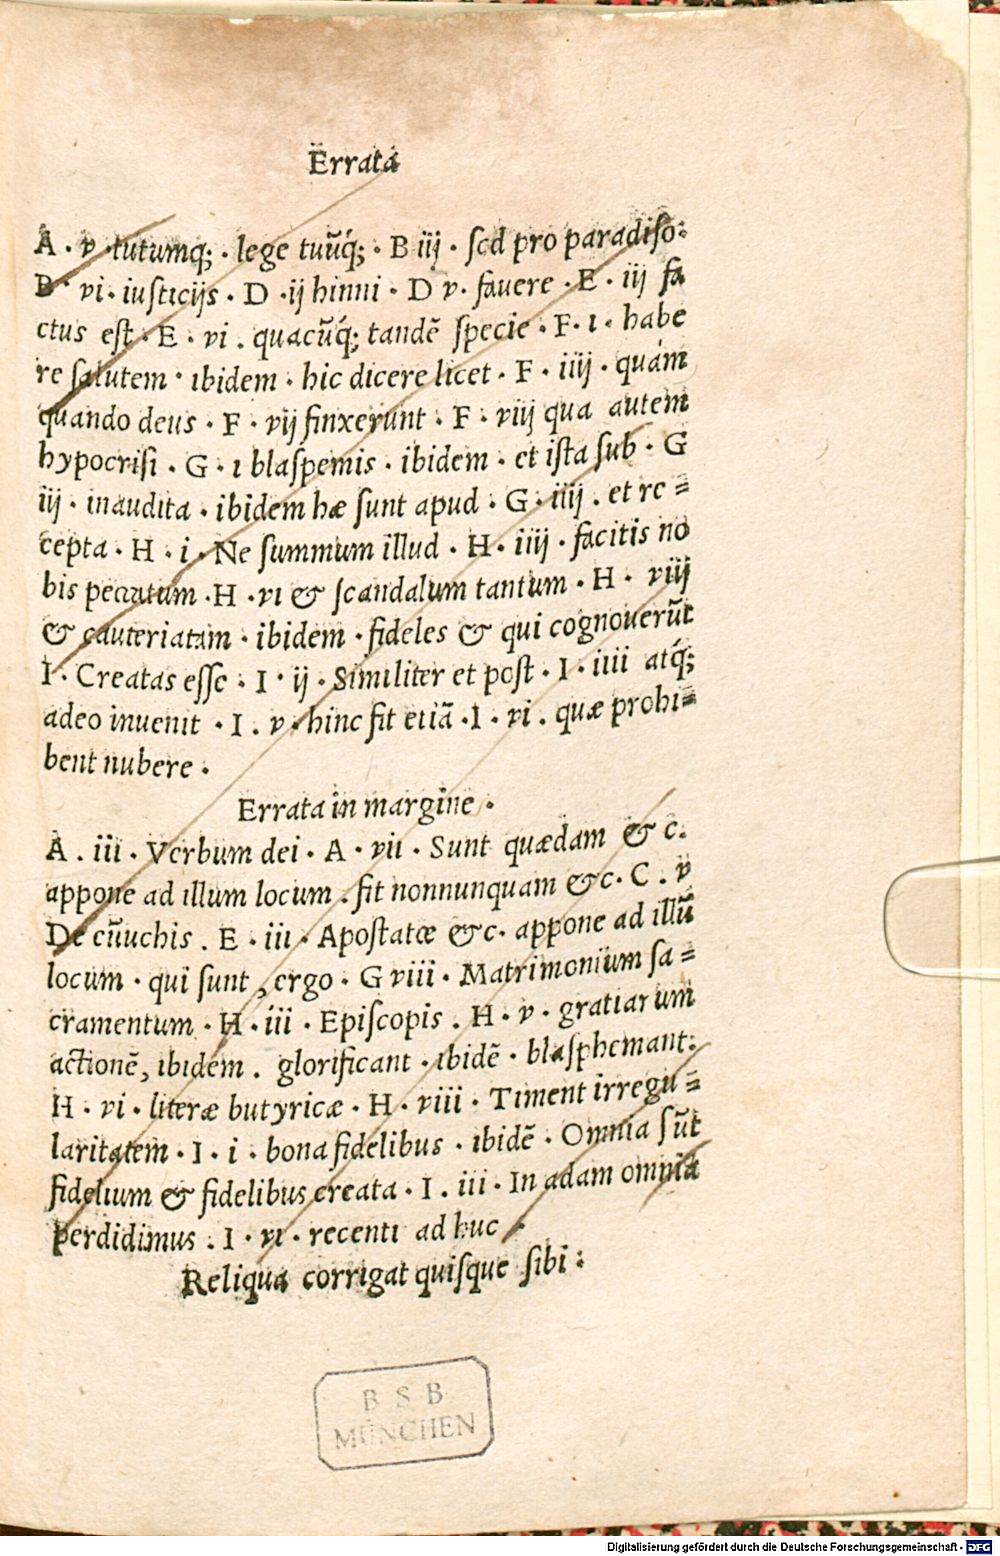 Errata
A . v . tutumq; . lege tuūq́; . B iij . sed pro paradiso:
B . vi . iusticijs . D . ij hinni . D v . favere . E . iij fa
ctus est . E . vi . quacūq́; tandē specie . F . ı . habe
re salutem . ıbidem . hic dicere licet . F . iiij . quám
quando deus . F . vij finxerunt . F . viij qua autem
hypocrisi . G . ı blaspemis . ibidem . et ista sub . G
iij . inaudita . ibidem hæ sunt apud . G . iiij . et re =
cepta . H . i . Ne summum illud . H . iiij . facitis no
bis peccatum . H . vı & scandalum tantum . H . viij
& cauteriatam . ibidem . fideles & qui cognouerūt
I . Creatas esse . I . ij . Similiter et post . I . iiii atq́;
adeo inuenit . I . v . hinc fit etiā . I . vi . quæ prohi=
bent nubere .
Errata in margine .
A . iii . Verbum dei . A . vii . Sunt quædam & c.
appone ad illum locum . fit nonnunquam &c . C . v
De cūuchis . E . iii . Apostatæ &c . appone ad illū
locum . qui sunt , ergo . G viii . Matrimonium sa =
cramentum . H . iii . Episcopis . H . v . gratiarum
actionē, ıbidem . glorificant . ibidē . blasphemant:
H . vi . literæ butyricæ . H . viii . Timent irregu =
laritatem . I . i . bona fidelibus . ıbidē . Omnia sūt
fidelium & fidelibus creata . I . iii . In adam omnia
perdidimus . I . vı . recenti ad huc .
Reliqua corrigat quisque sibi :
B S B
MÜNCHEN
Digitalisierung gefördert durch die Deutsche Forschungsgemeinschaft - DFG